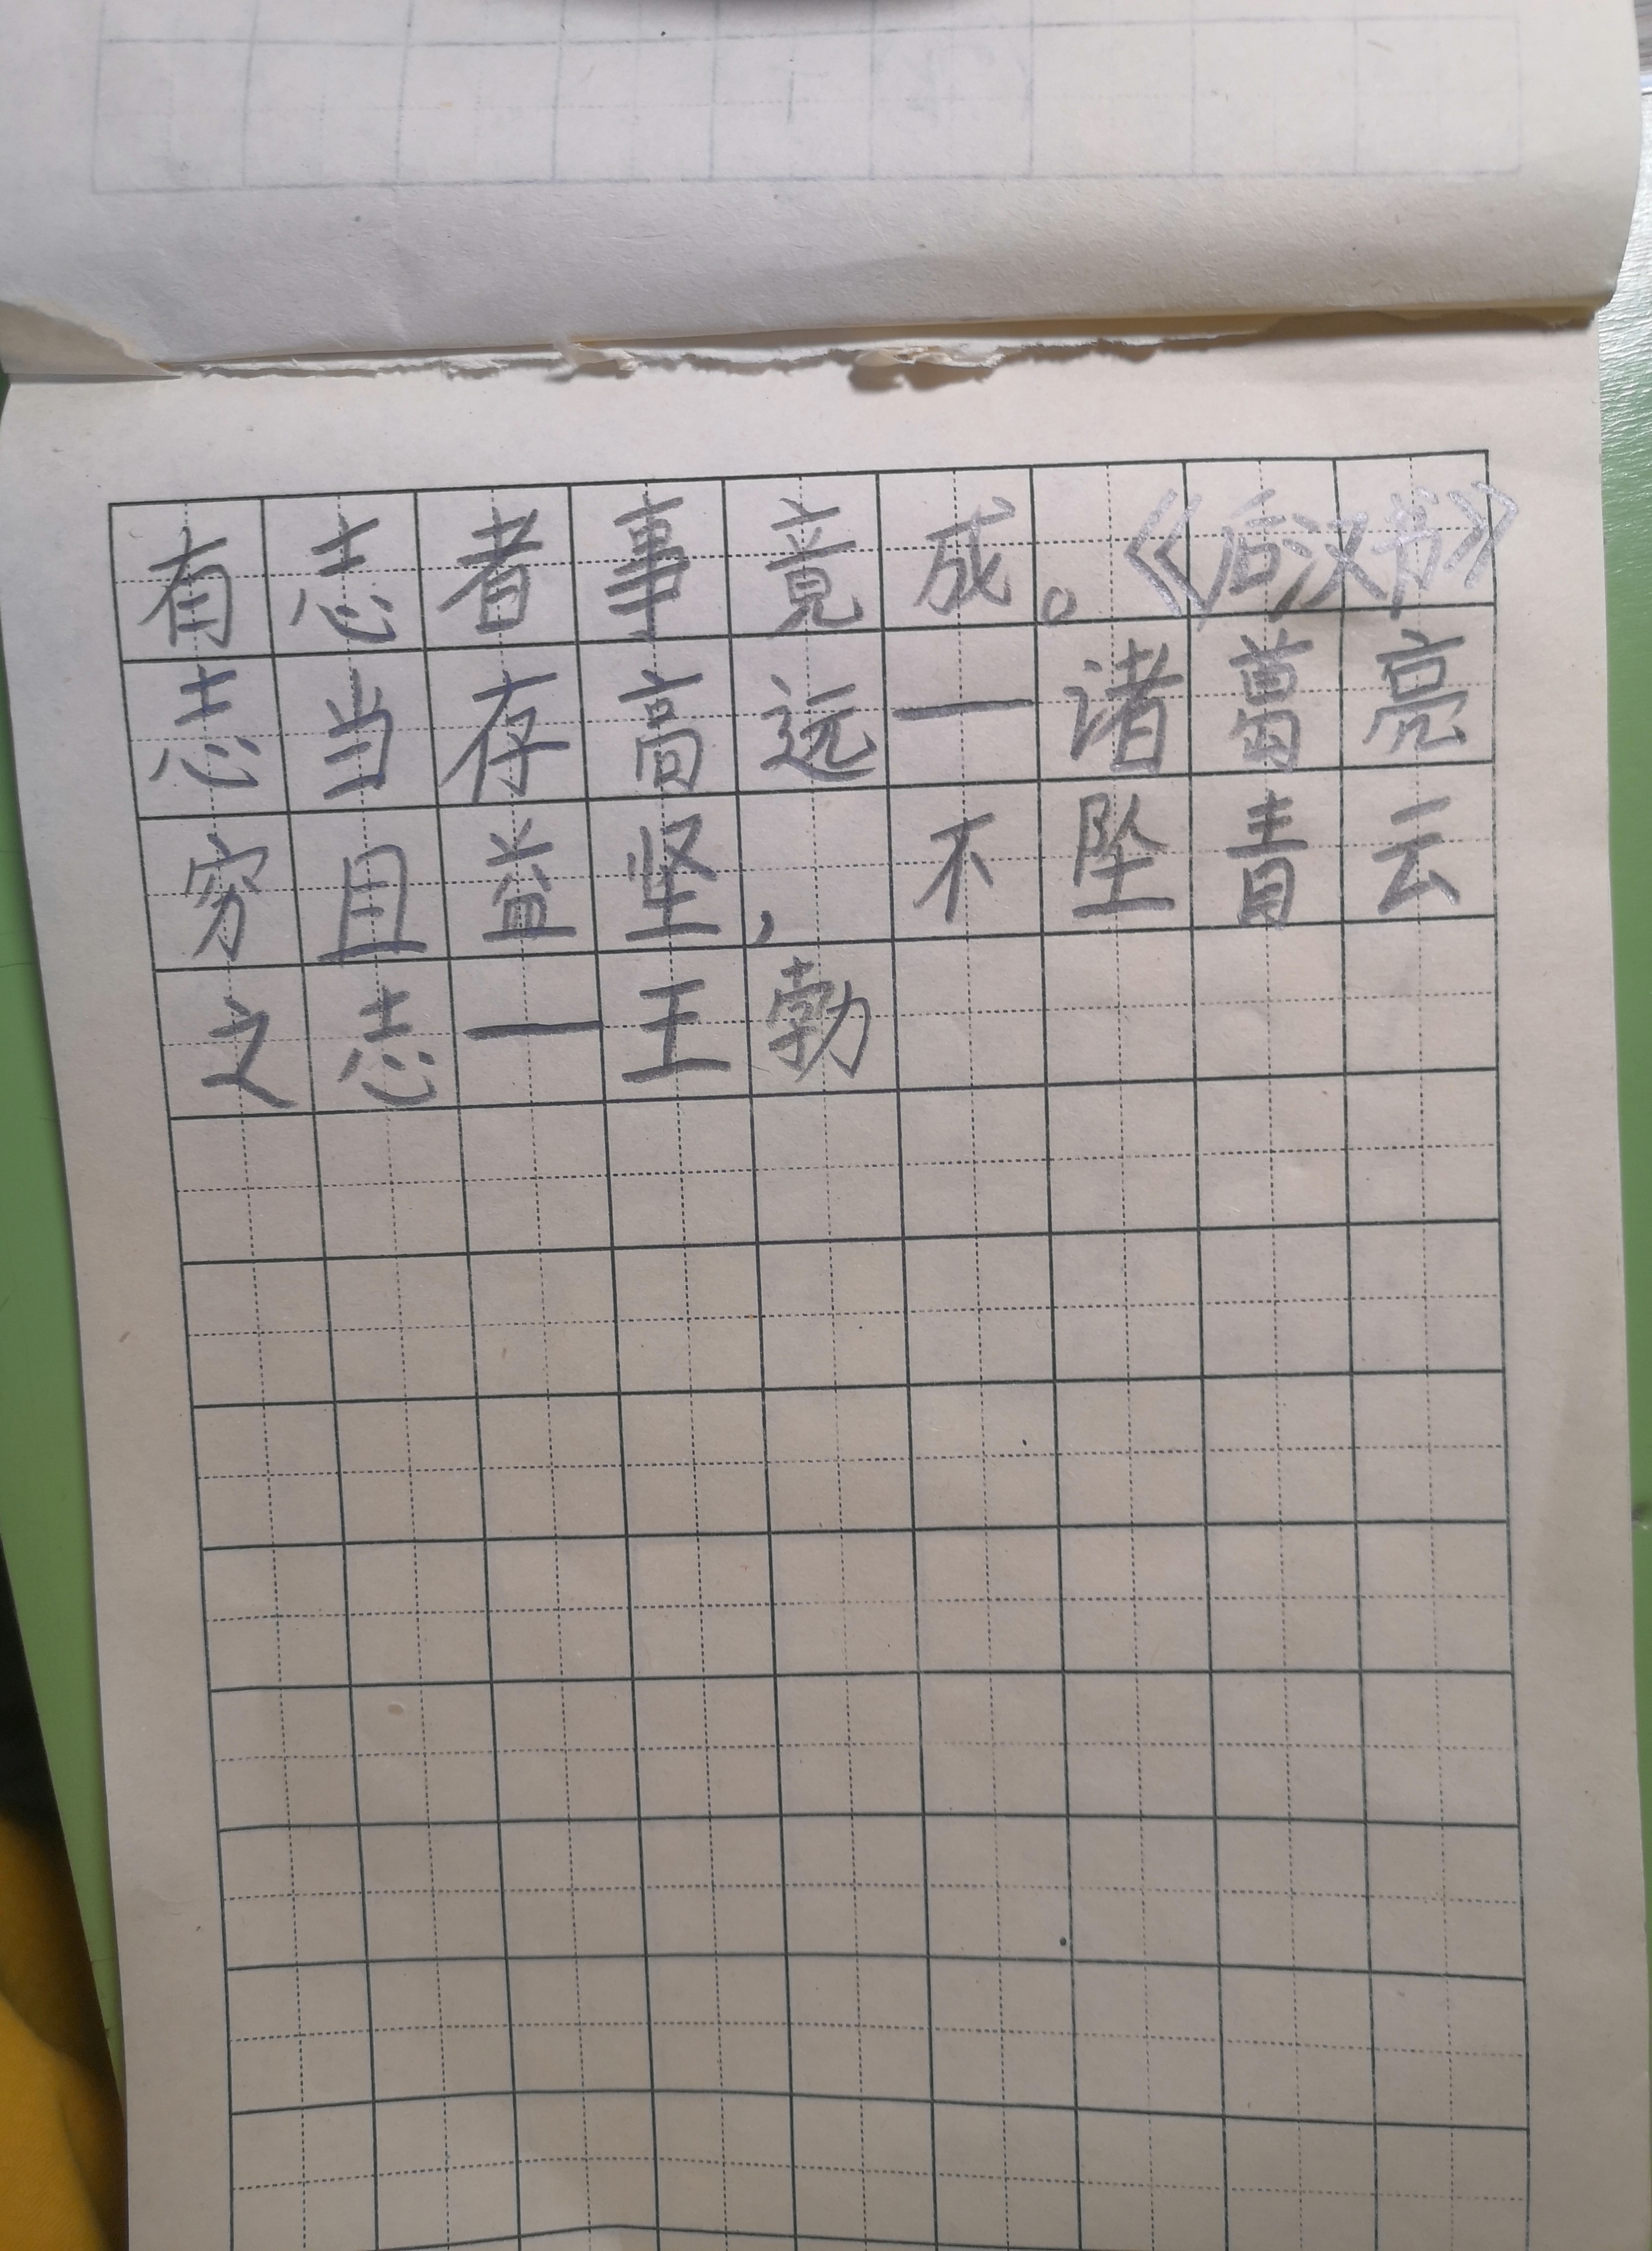 有志者事竟成。《后汉书》
志当存高远一诸葛亮
穷且益坚，不坠青云
之志一王勃